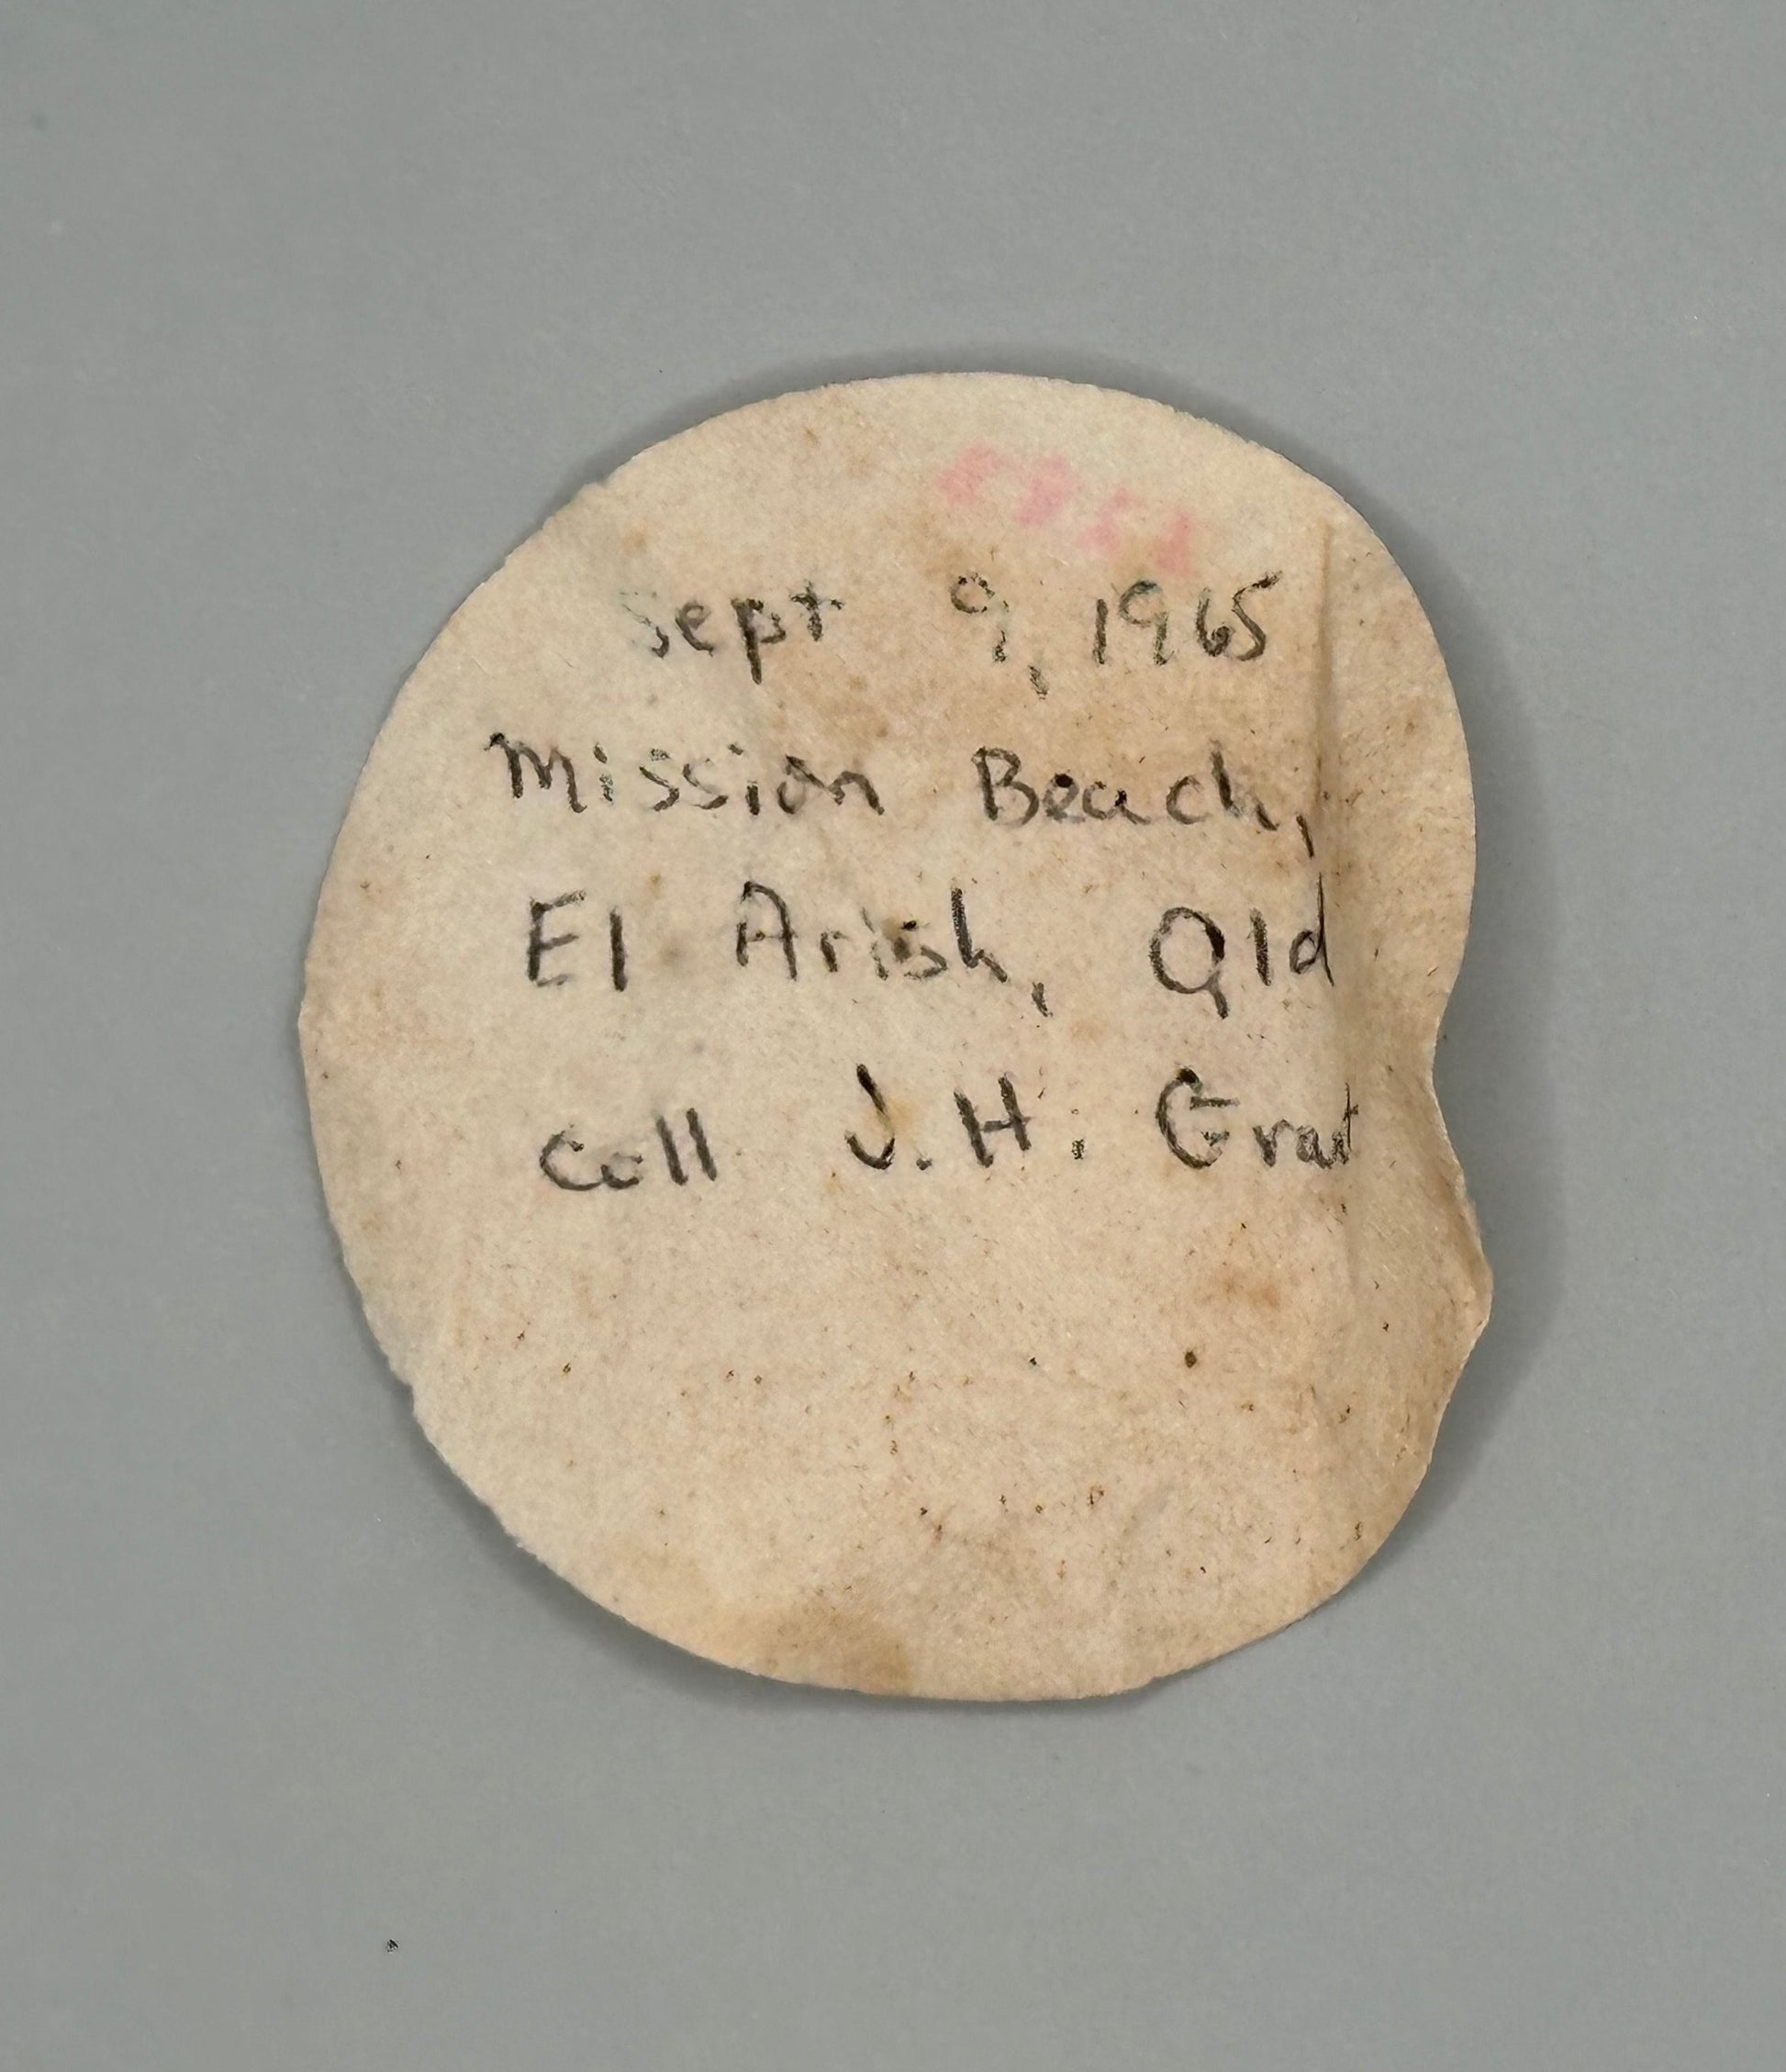 Sept 9, 1965
Mission Beach,
El Arish, Qld
Coll J.H. Grant